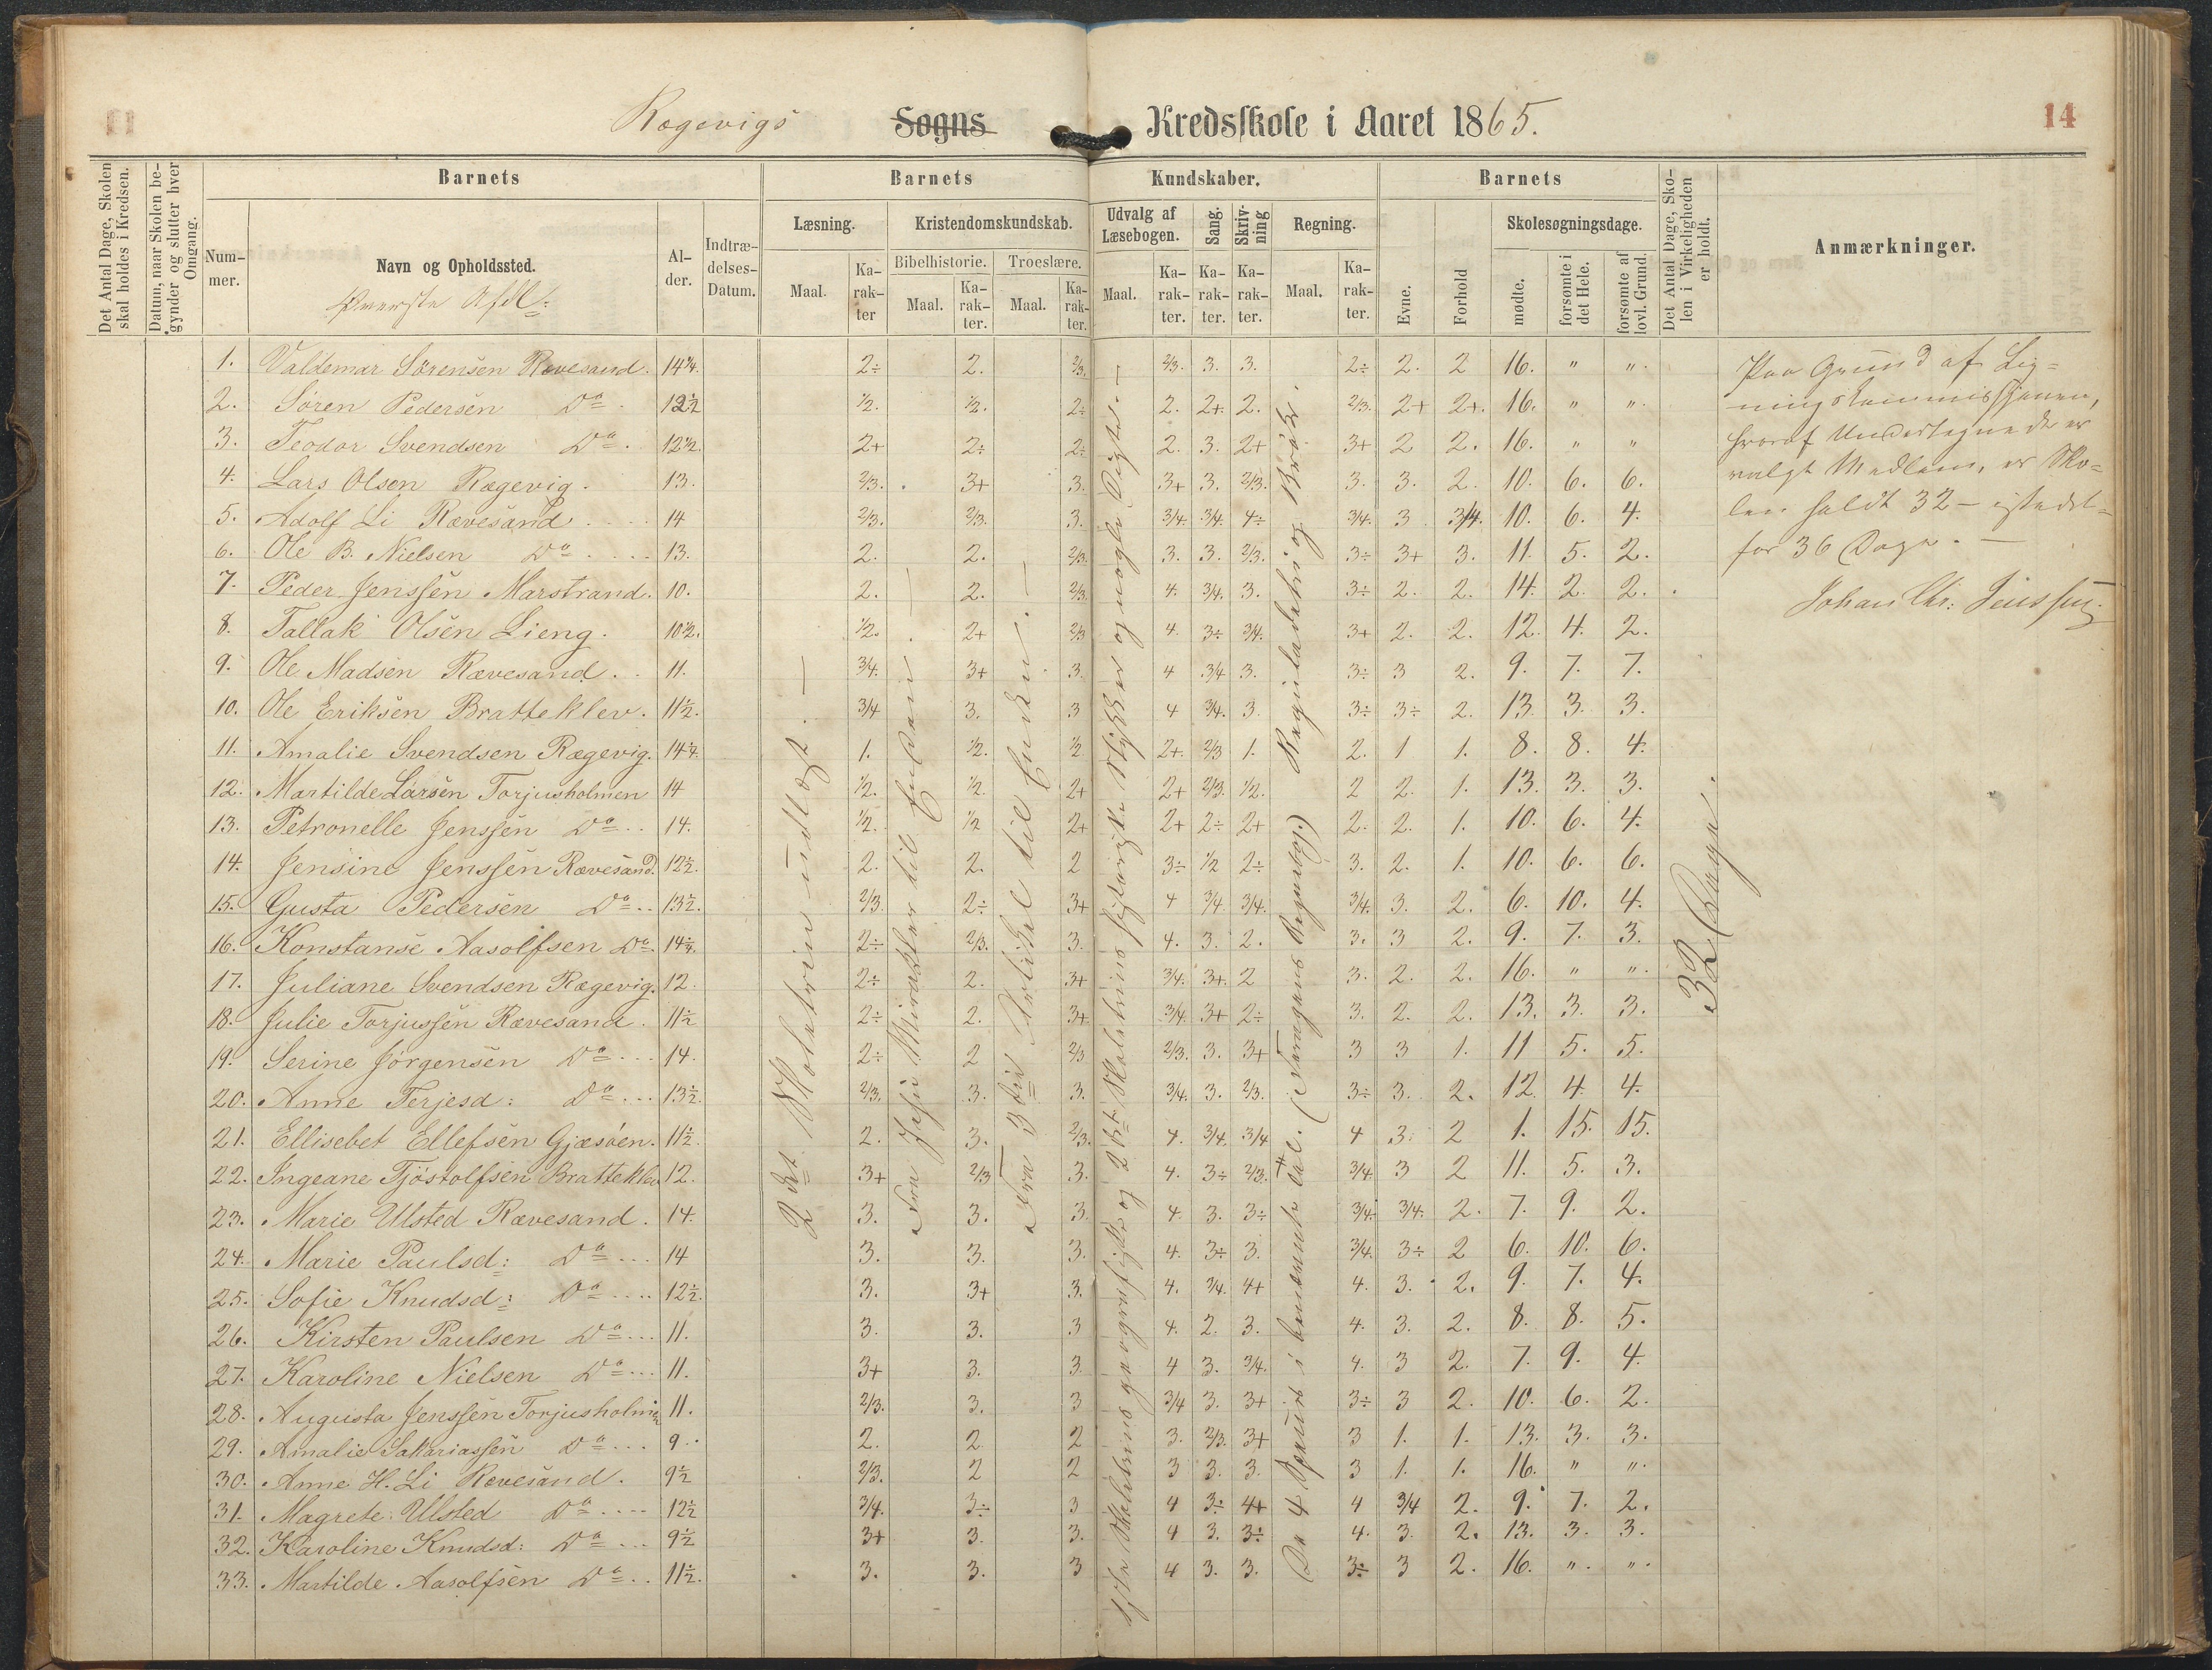 Rægevigs Sogns Kredsskole i Aaret 1865.
14
Det Antal Dage, Skolen skal holdes i Kredsen.
Datum, naar Skolen begynder og slutter hver Omgang.
Barnets
Nummer.
Navn og Opholdssted.
Øverste Afdl:
Alder.
Indtrædelses-Datum.
Barnets Kundskaber.
Læsning.
Maal.
Karakter
Kristendomskundskab.
Bibelhistorie.
Maal.
Karakter.
Troeslære.
Maal.
Karakter.
Udvalg af Læsebogen.
Maal.
Karakter.
Sang.
Karakter.
Skrivning
Karakter.
Regning.
Maal.
Karakter.
Barnets
Evne.
Forhold
Skolesøgningsdage.
mødte.
forsømte i det Hele.
forsømte af lovl. Grund.
Det Antal Dage, Skolen i Virkeligheden er holdt.
Anmærkninger.
1. Valdemar Sørensen Rævesand. 14¼. 2÷ 2. 2/3. 2/3. 3. 3. 2÷ 2. 2 16. " "
2. Søren Pedersen Do. 12½ 1/2. 1/2. 2÷ 2. 2+. 2. 2/3. 2+ 2+. 16. " "
3. Teodor Svendsen Do. 12½. 2+ 2÷ 2÷ 2. 3. 2+ 3+ 2 2. 16. " "
4. Lars Olsen Rægevig. 13. 2/3. 3+ 3. 3+ 3. 2/3. 3. 3. 2. 10. 6. 6.
5. Adolf Li Rævesand 14 2/3. 2/3. 3. 3/4. 3/4. 4÷ 3/4. 3 3/4. 10. 6. 4.
6. Ole B. Nielsen Do 13. 2. 2. 2/3. 3. 3. 2/3. 3÷ 3+ 3. 11. 5. 2.
7. Peder Jenssen Marstrand. 10. 2. 2. 2/3. 4. 3/4. 3. 3÷ 2. 2. 14. 2. 2.
8. Tallak Olsen Lieng. 10½. 1/2. 2+ 2/3 4. 3÷ 3/4. 3+ 2. 2. 12. 4. 2.
9. Ole Madsen Rævesand. 11. 3/4. 3+ 3. 4 3/4 3. 3÷ 3 2. 9. 7. 7.
10. Ole Eriksen Bratteklev. 11½. 3/4 3. 3 4 3/4. 3. 3÷ 3÷ 2. 13. 3. 3.
11. Amalie Svendsen Rægevig. 14¼. 1. 1/2. 1/2 2+. 2/3 1. 2. 1 1. 8. 8. 4.
12. Martilde Larsen Torjusholmen 14 1/2. 1/2. 2+ 2+ 2/3. 1/2. 2 2. 1. 13. 3. 3.
13. Petronelle Jenssen Do 14. 1/2. 1/2 2+ 2+ 2÷ 2+ 2. 2. 1. 10. 6. 4.
14. Jensine Jenssen Rævesand. 12½. 2. 2. 2 3÷ 1/2 2÷ 3. 2. 1. 10. 6. 6.
15. Gusta Pedersen Do 13½. 2/3. 2÷ 3+ 4 3/4. 3/4. 3/4. 3. 2. 6. 10. 4.
16. Konstanse Aasolfsen Do 14¼. 2÷ 2/3. 3. 4. 3. 2. 3. 3 2. 9. 7. 3.
17. Juliane Svendsen Rægevig. 12. 2÷ 2. 3+ 3/4. 3+. 2 3. 2. 2. 16. " "
18. Julie Torjussen Rævesand. 11½ 2÷ 2. 3+ 3/4. 3+ 2÷ 3. 2. 2. 13. 3. 3.
19. Serine Jørgensen Do 14. 2÷ 2 2/3 2/3. 3. 3+ 3 3 1. 11 5. 5.
20. Anne Terjesd: Do 13½. 2/3. 3. 3. 3/4. 3. 2/3. 3÷ 3. 2. 12. 4. 4.
21. Ellisebet Ellefsen Gjæsöen. 11½. 2. 3. 2/3. 4. 3/4. 3/4 4 3. 2 1. 15. 15.
22. Ingeane Tjöstolfsen Bratteklev 12. 3+ 2/3 3. 4. 3÷ 2/3. 3/4. 3 2 11. 5. 3.
23. Marie Ulsted Rævesand. 14. 3. 3. 3. 4. 3. 3÷ 3/4. 3/4. 2. 7. 9. 2.
24. Marie Paulsd: Do 14 3. 3. 3. 4. 3÷ 3. 3/4. 3÷ 2 6. 10. 6.
25. Sofie Knudsd: Do 12½. 3. 3+ 3. 4. 3/4. 4+ 4. 3. 2. 9. 7. 4.
26. Kirsten Paulsen Do 11. 3. 3. 3 4. 2. 3. 4. 3. 2. 8. 8. 5.
27. Karoline Nielsen Do 11. 3+ 3. 3. 4 3. 3/4. 4. 3 2. 7. 9. 4.
28. Augusta Jenssen Torjusholmen 11. 2/3. 3. 3 3/4 3. 3+ 3÷ 3 2. 10. 6. 2.
29. Amalie Sakariassen Do 9 2. 2. 2 3. 2/3. 3+ 3 1. 1. 13. 3. 3.
30. Anne H. Li Rævesand. 9½ 2/3. 2 2 3 3. 3. 3 1. 1. 16. " "
31. Magrete Ulsted Do 12½ 3/4. 3÷ 3 4 3÷ 4+ 4 3/4 2. 9. 7. 2.
32. Karoline Knudsd: Do 9½ 3+ 3. 3. 4 3. 3÷ 4. 3. 2. 13. 3. 3.
33. Martilde Aasolfsen Do 11½. 3. 3. 3 4 3. 3. 3÷ 3 2. 16. " "
2det Skoletrin udlagt.
Fra Jesu Mirakler til Endau
Fra 3die Artikel til Enden.
1ste Skoletrins geografiske og 2det Skoletrins historiske Stykker og nogle Digte.
De 4 Species i benævnte Tal. (Noragers Regnebog.) Reguladetri og Brøk.
32 Dage.
Paa Grund af Lig-
ningskommissjonen,
hvoraf Undertegnede er
valgt Medlem, er Sko-
len holdt 32 – istedet-
for 36 Dage. –
Johan Chr: Jenssen